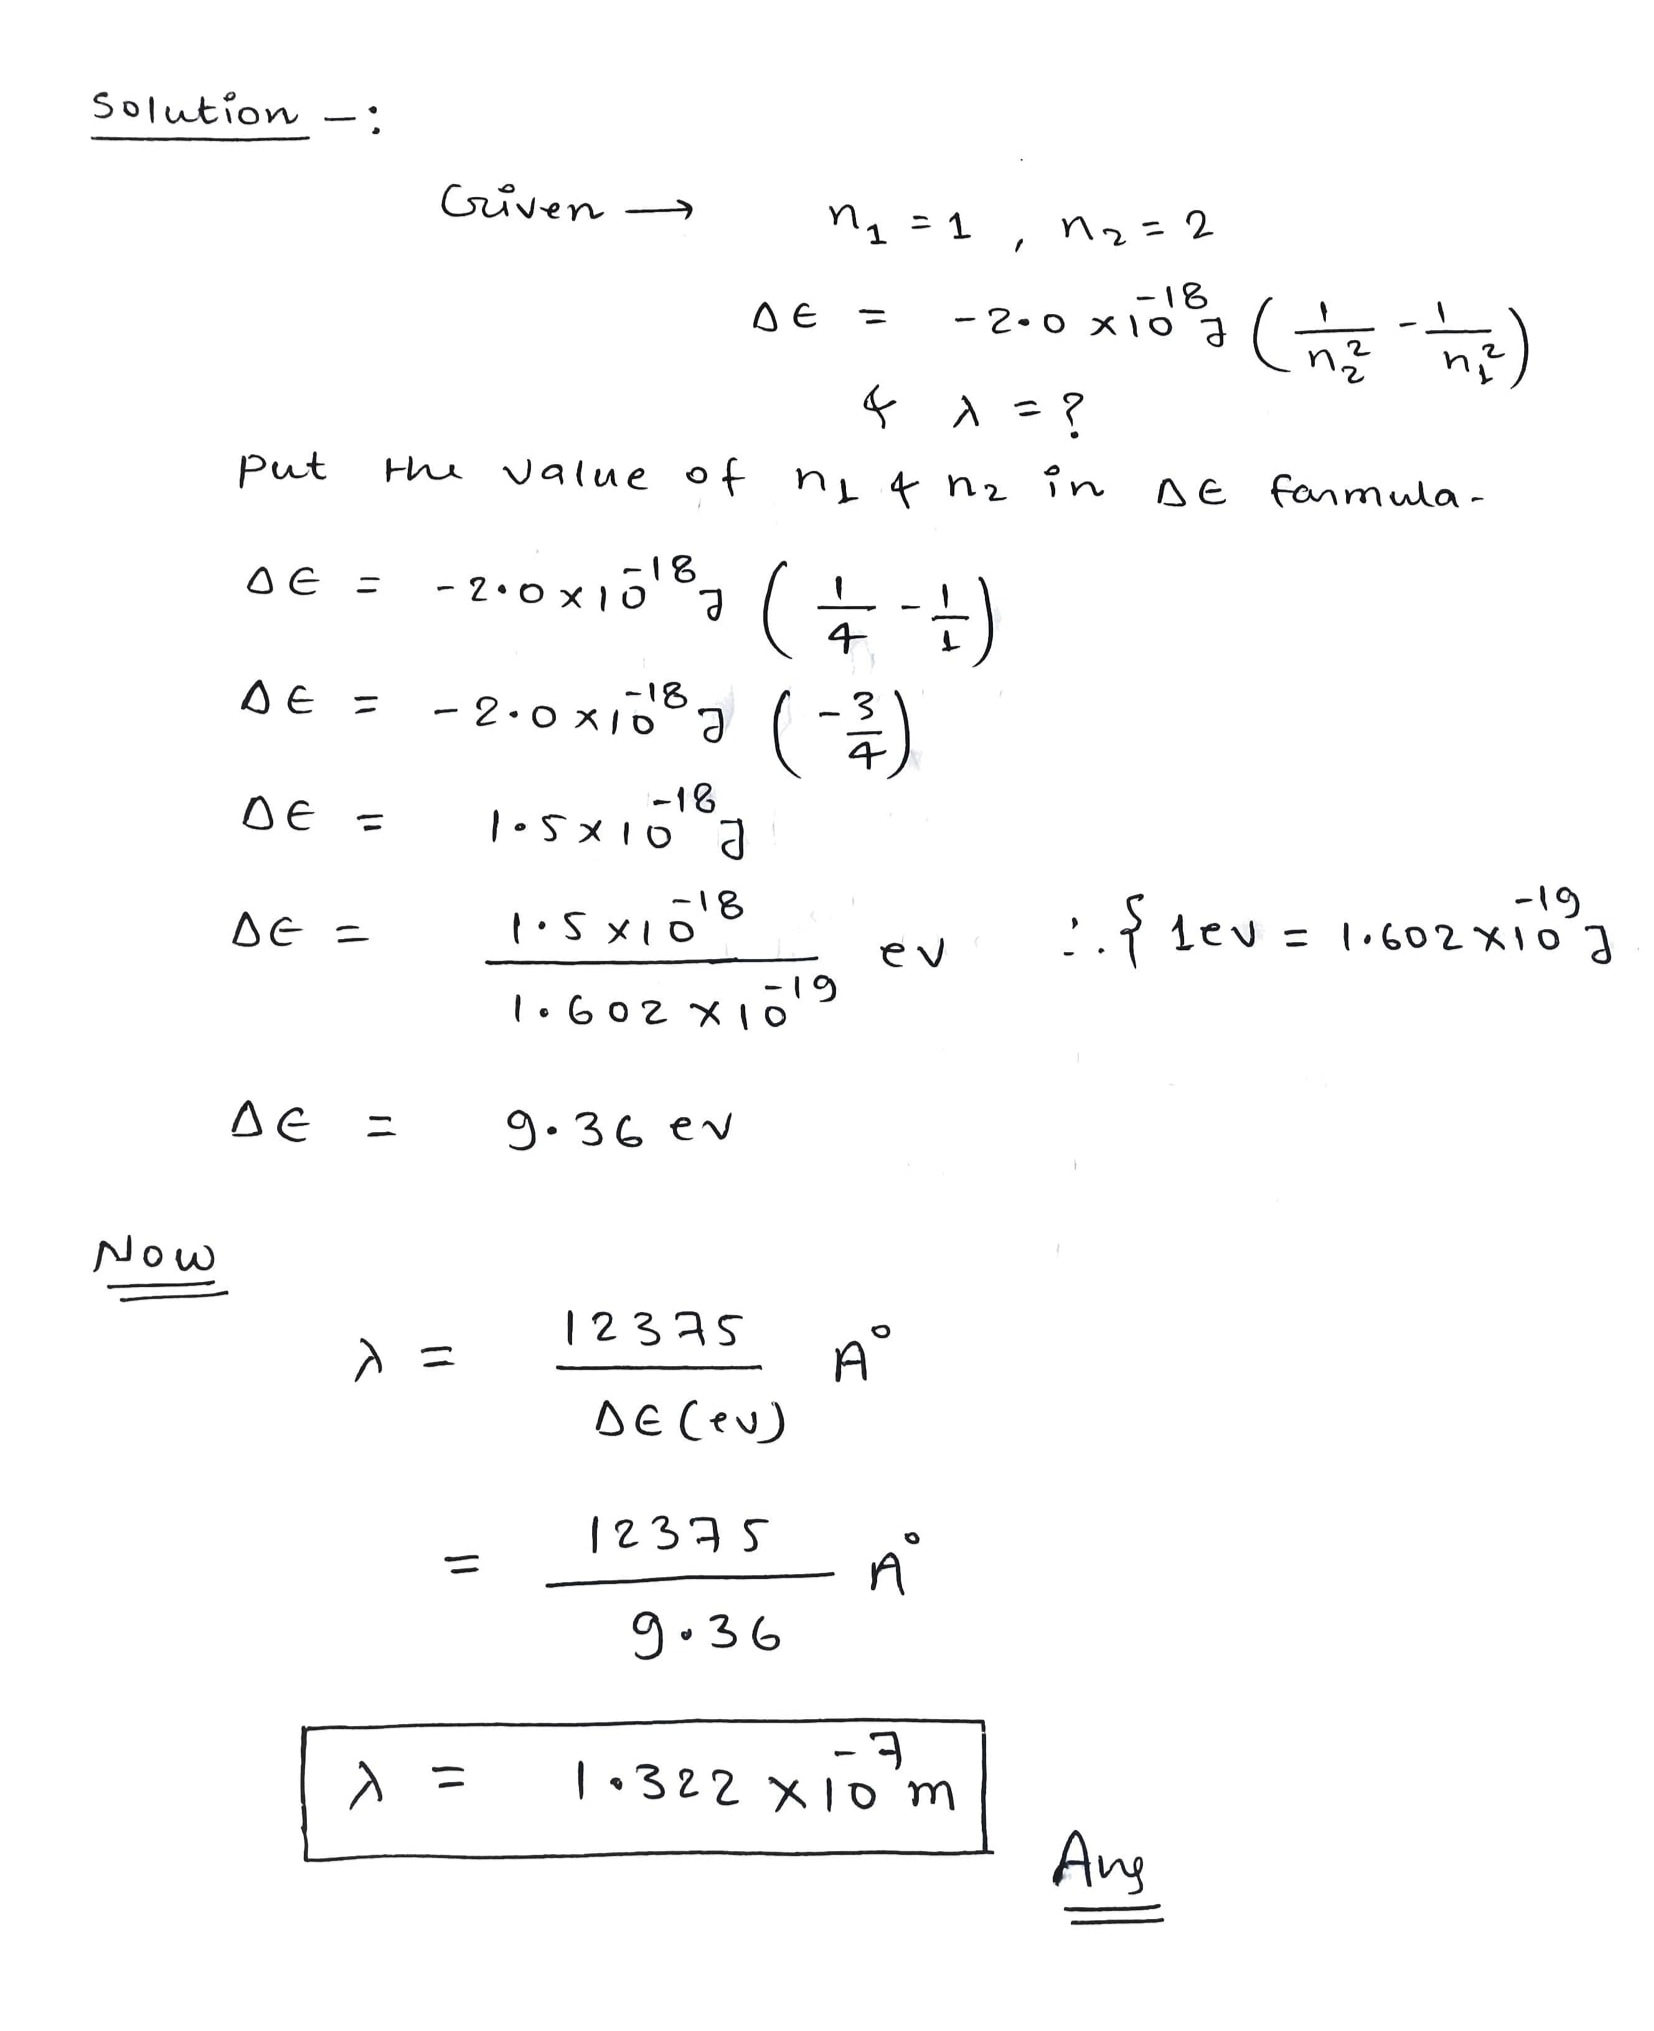 Solution -:
Given → n₁ = 1 , n₂ = 2
ΔE = -2.0 x 10⁻¹⁸ J (1/n₂² - 1/n₁²)
& λ = ?
Put the value of n₁ & n₂ in ΔE formula-
ΔE = -2.0 x 10⁻¹⁸ J (1/4 - 1/1)
ΔE = -2.0 x 10⁻¹⁸ J (-3/4)
ΔE = 1.5 x 10⁻¹⁸ J
ΔE = 1.5 x 10⁻¹⁸ / 1.602 x 10⁻¹⁹ ev ∴ { 1ev = 1.602 x 10⁻¹⁹ J
ΔE = 9.36 ev
Now
λ = 12375 / ΔE (ev) A°
= 12375 / 9.36 A°
λ = 1.322 x 10⁻⁷ m
Ans